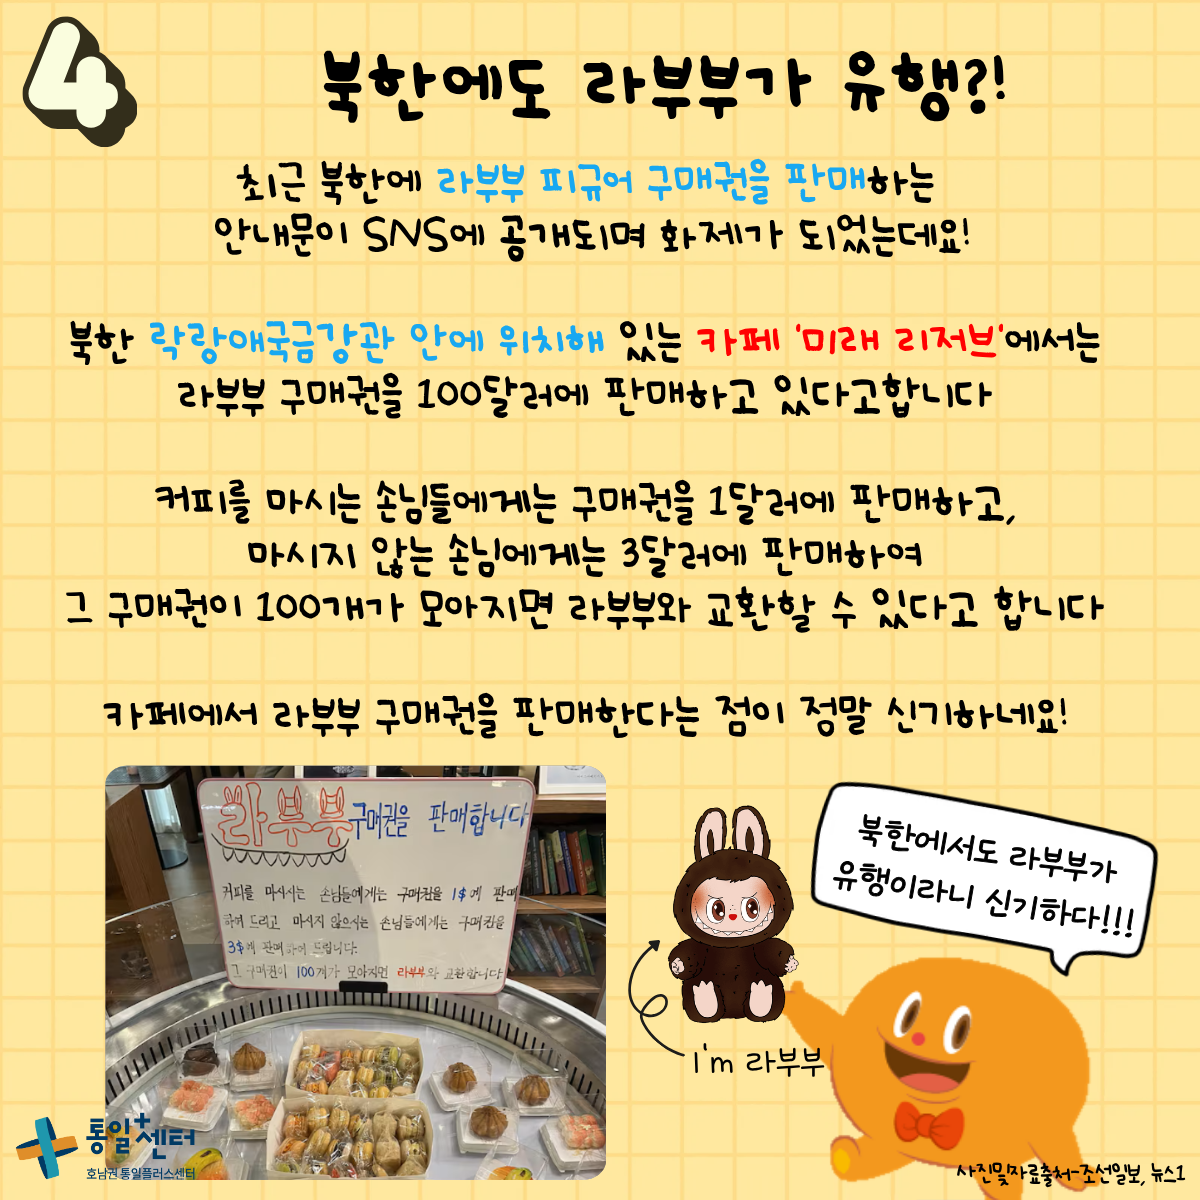 4
북한에도 라부부가 유행?!
최근 북한에 라부부 피규어 구매권을 판매하는
안내문이 SNS에 공개되며 화제가 되었는데요!
북한 락랑애국금강관 안에 위치해 있는 카페 '미래 리저브'에서는
라부부 구매권을 100달러에 판매하고 있다고합니다
커피를 마시는 손님들에게는 구매권을 1달러에 판매하고,
마시지 않는 손님에게는 3달러에 판매하여
그 구매권이 100개가 모아지면 라부부와 교환할 수 있다고 합니다
카페에서 라부부 구매권을 판매한다는 점이 정말 신기하네요!
라부부 구매권을 판매합니다
커피를 마시는 손님들에게는 구매권을 1$에 판매
하여 드리고 마시지 않으시는 손님들에게는 구매권을
3$에 판매하여 드립니다.
그 구매권이 100개가 모아지면 라부부와 교환합니다
북한에서도 라부부가
유행이라니 신기하다!!!
I'm 라부부
통일+센터
호남권 통일플러스센터
사진및자료출처-조선일보, 뉴스1